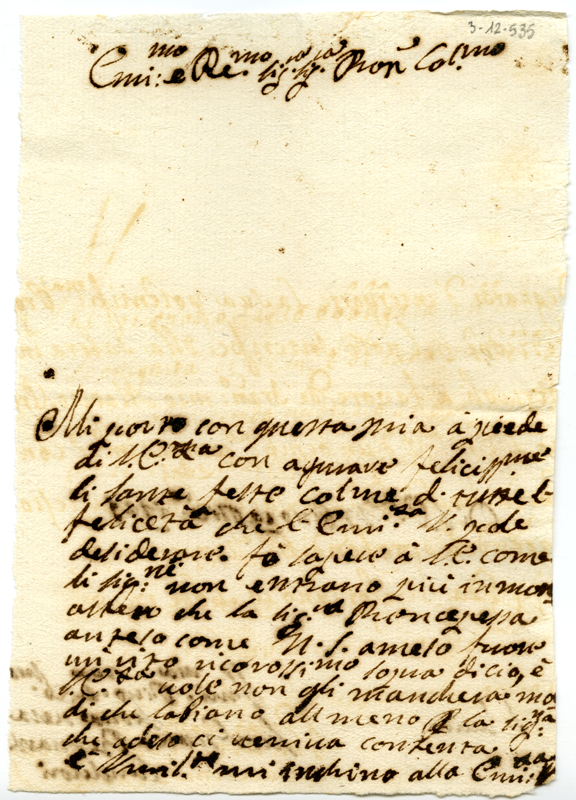 3-12-535
Emi:mo e Re.mo sig.re sig.re Pron Col.mo
Mi porto con questa mia à piede
di V.E.za con aguiare felicissime
li sante feste colme d. tutte le
felicetà che l Emi.za V. vole
desiderare. fò sapere à V.E. come
li sig.ne non entrano più in mon
astero che la sig.ra Prencepessa
anteso come N.S. a meso fuore
un rito ricorossimo sopra dicio, è
V.E.za vole non gli manchera mo
di che labiano allmeno la sig.ra
che adeso ci veniva contenta
è Umil.te mi inchino alla Emi.za V